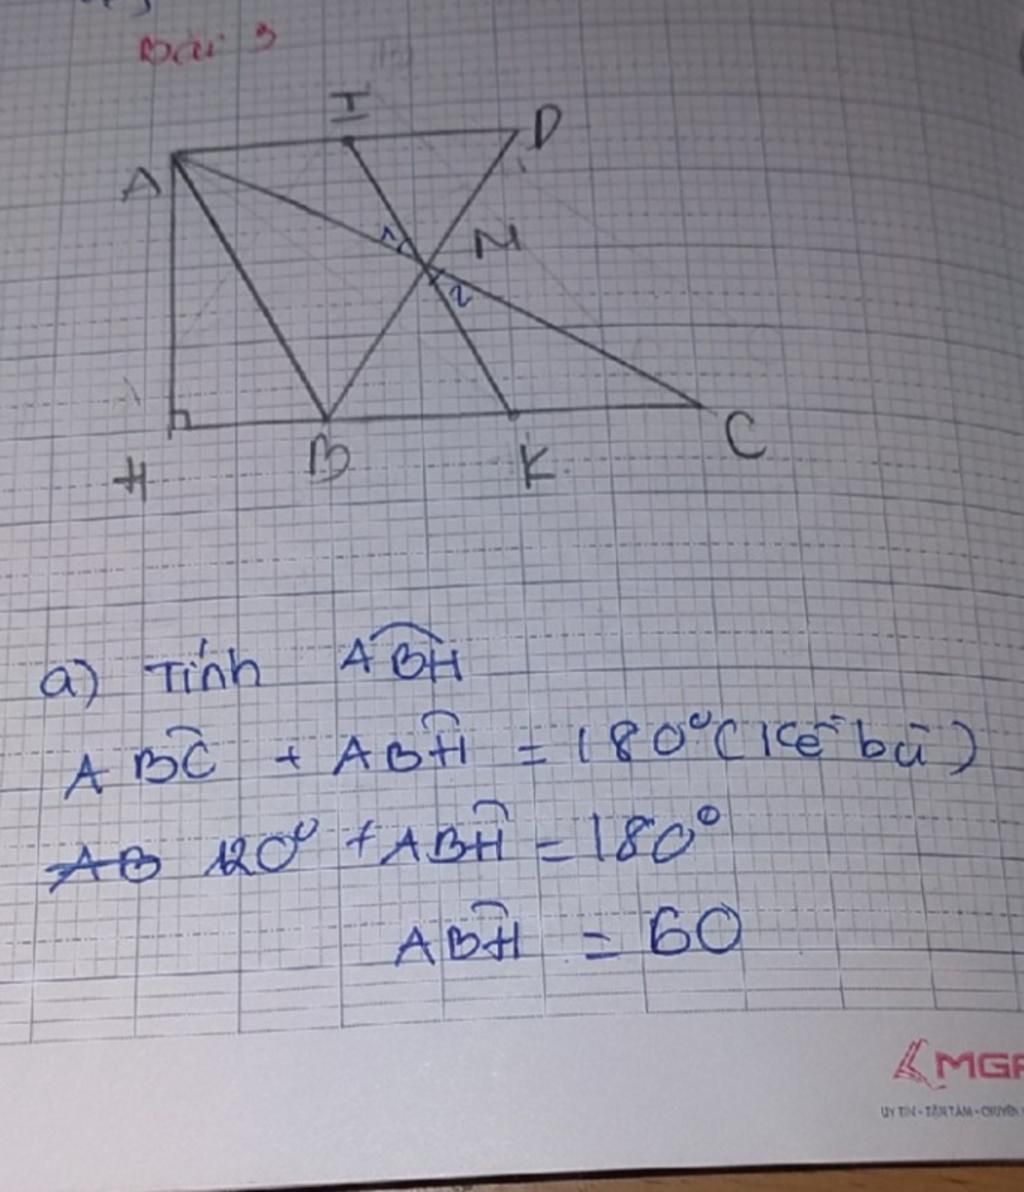 Bài 3
I
D
A
1
M
2
H
B
K
C
a) Tính ABH
ABC + ABH = 180° (kề bù)
AB 120° + ABH = 180°
ABH = 60
MGF
UY TÍN - TẬN TÂM - CHUYÊN